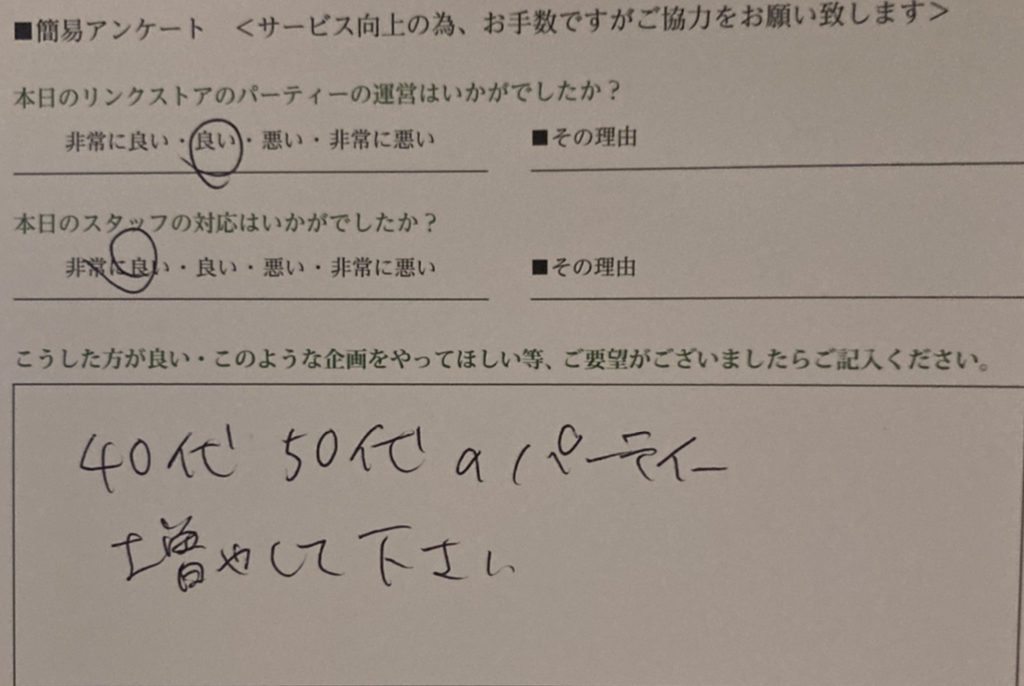 ■簡易アンケート ＜サービス向上の為、お手数ですがご協力をお願い致します＞
本日のリンクストアのパーティーの運営はいかがでしたか？
非常に良い・良い・悪い・非常に悪い ■その理由
本日のスタッフの対応はいかがでしたか？
非常に良い・良い・悪い・非常に悪い ■その理由
こうした方が良い・このような企画をやってほしい等、ご要望がございましたらご記入ください。
40代 50代のパーティー
増やして下さい